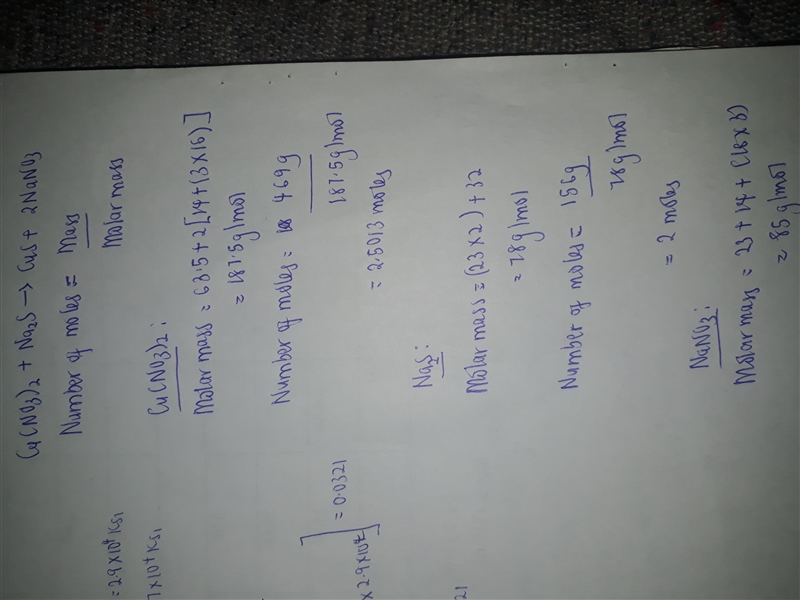 Cu(NO3)2 + Na2S → CuS + 2NaNO3
Number of moles = Mass
Molar mass
Cu(NO3)2:
Molar mass = 63.5 + 2[14 + (3 x 16)]
= 187.5g/mol
Number of moles = 469g
187.5g/mol
= 2.5013 moles
Na2S:
Molar mass = (23 x 2) + 32
= 78g/mol
Number of moles = 156g
78g/mol
= 2 moles
NaNO3:
Molar mass = 23 + 14 + (16 x 3)
= 85g/mol
= 29 x 10⁴ Ksi
7 x 10⁴ Ksi
x 2.9 x 10⁴] = 0.0321
21